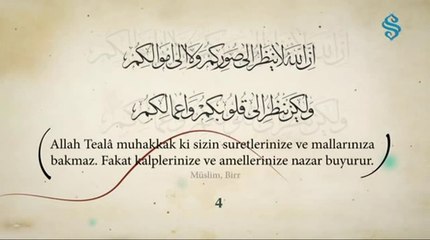 إن الله لا ينظر إلى صوركم ولا إلى أموالكم
ولكن ينظر إلى قلوبكم وأعمالكم
Allah Tealâ muhakkak ki sizin suretlerinize ve mallarınıza
bakmaz. Fakat kalplerinize ve amellerinize nazar buyurur.
Müslim, Birr
4